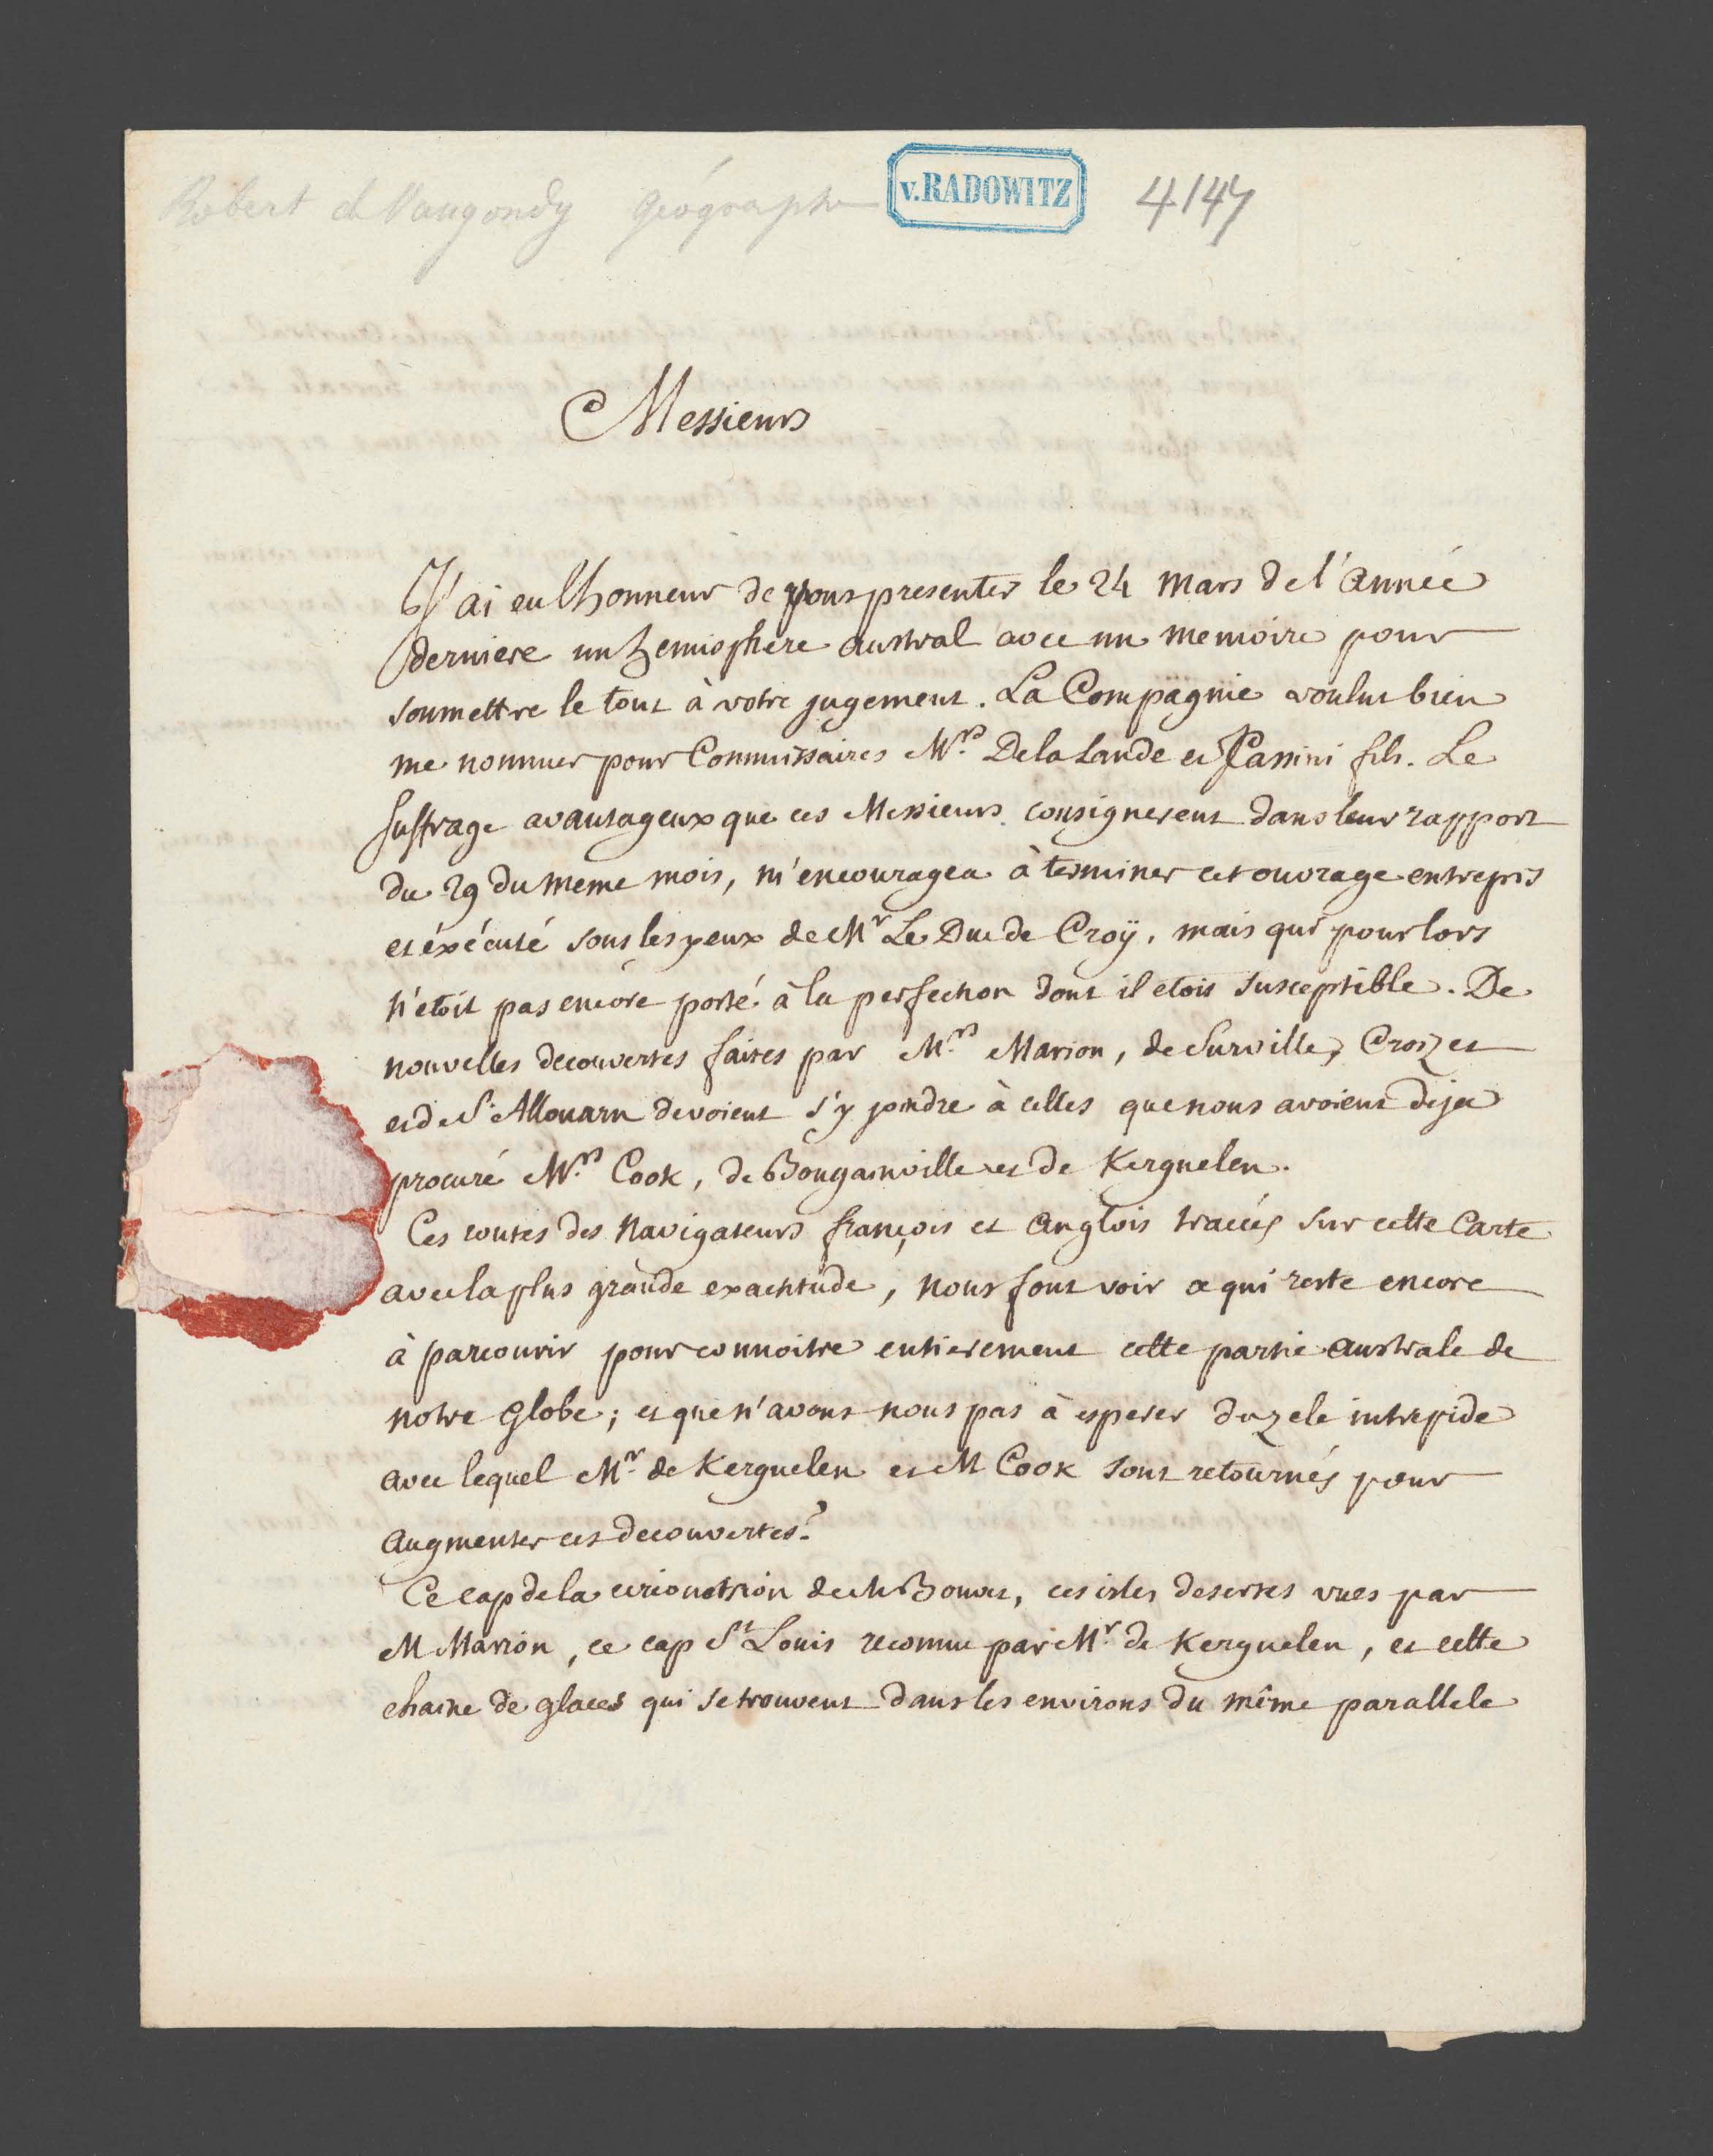 Robert de Vaugondy géographe
v. RADOWITZ
4147
Messieurs
J'ai eu lhonneur de vous presenter le 24 mars de l'année
derniere un hemisphere austral avec un memoire pour
soumettre le tout à votre jugement. La Compagnie voulut bien
me nommer pour Commissaires Mrs. De la Lande et Cassini fils. Le
suffrage avantageux que ces Messieurs consignerent dans leur rapport
du 29 du meme mois, m'encouragea à terminer cet ouvrage entrepris
et éxécuté sous les yeux de Mr Le Duc de Croÿ, mais qui pour lors
n'etoit pas encore porté à la perfection dont il etoit susceptible. De
nouvelles decouvertes faites par Mrs. Marion, de Surville, Crozet
et de St. Allouarn devoient s'y joindre à celles que nous avoient deja
procuré Mrs. Cook, de Bougainville et de Kerguelen.
Ces routes des Navigateurs françois et anglois tracées sur cette Carte
avec la plus grande exactitude, nous font voir ce qui reste encore
à parcourir pour connoitre entierement cette partie australe de
notre Globe; et que n'avons nous pas à esperer du zele intrepide
avec lequel Mr. de Kerguelen et M Cook sont retournés pour
augmenter ces decouvertes?
Ce cap de la circoncision de M Bouvet, ces isles desertes vues par
M Marion, ce cap St Louis reconnu par Mr. de Kerguelen, et cette
chaine de glaces qui se trouvent dans les environs du même parallele